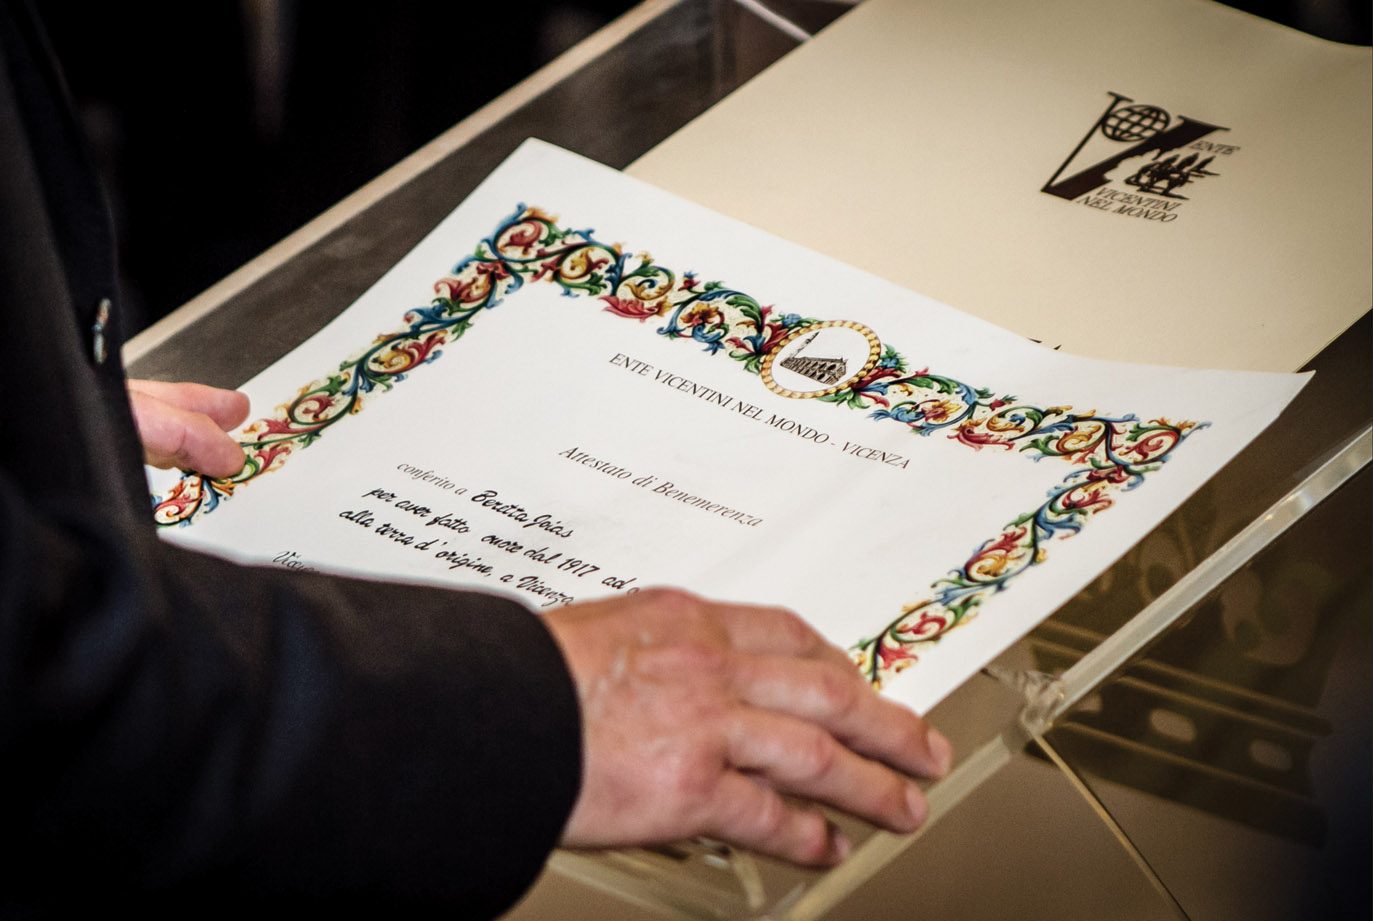 ENTE
VICENTINI
NEL MONDO
ENTE VICENTINI NEL MONDO - VICENZA
Attestato di Benemerenza
conferito a Beretta Joias
per aver fatto cuore dal 1917 ad
alla terra d'origine, a Vicenza